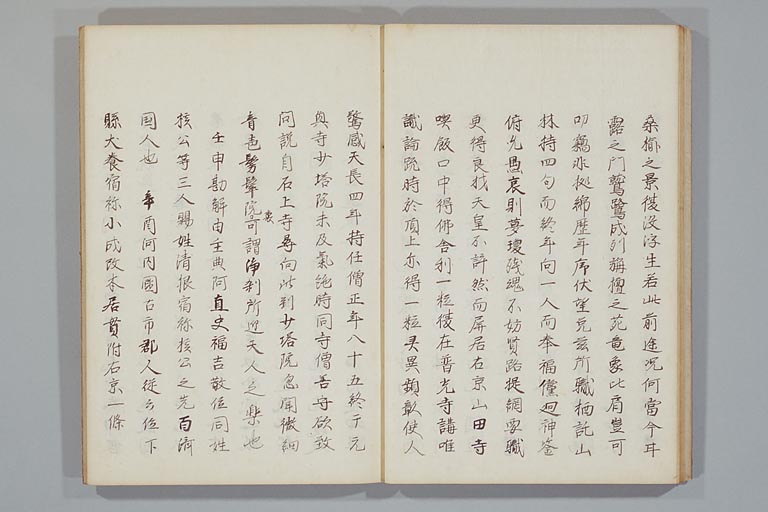 桑榆之景復没浮生若此前途況何當今甘
露之門鷲鷺成列旃檀之苑竜象比肩豈可
叨竊非據綿歴年序伏望免茲所職栖託山
林持四句而終年向一人而奉福儻廻神鑒
俯允愚衷則夢寝残魂不妨賢路提綱衆職
更得良材天皇不許然而屏居右京山田寺
喫飯口中得佛舎利一粒復在普光寺講唯
識論疏時於頂上亦得一粒灵異頻彰使人
驚感天長四年特任僧正年八十五終于元
興寺少塔院未及氣絶時同寺僧善守欲致
問説自石上寺尋向此到少塔院忽聞微細
音声髣髴院裏可謂浄刹所迎天人之楽也
壬申勘解由主典阿直史福吉散位同姓
核公等三人賜姓清根宿祢核公之先百済
国人也　辛酉河内國古市郡人從六位下
縣犬養宿祢小成改本居貫附右京一條